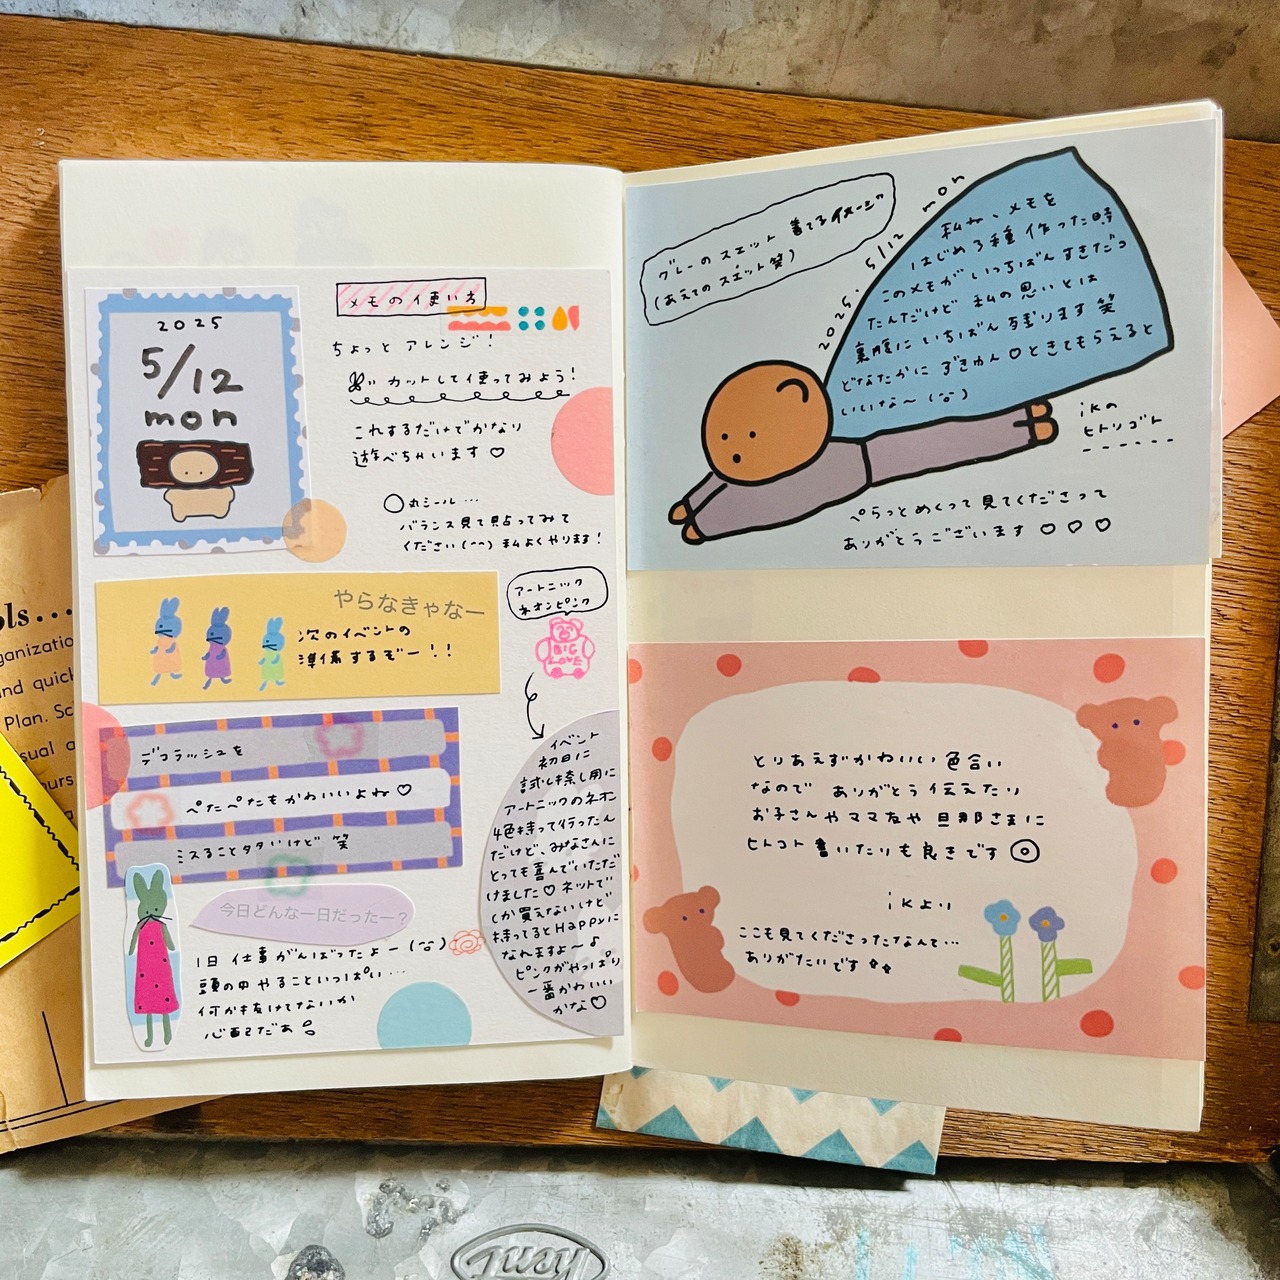 2025
5/12
mon
メモの使い方
ちょっと アレンジ！
カットして使ってみよう！
これするだけでかなり
遊べちゃいます♡
◯丸シール…
バランス見て貼ってみて
ください(^^) 私よくやります！
やらなきゃなー
次のイベントの
準備するぞー！！
アートニック
ネオンピンク
BIG
LOVE
デコラッシュを
ぺたぺたもかわいいよね♡
ミスることタタいけど 笑
今日どんな一日だったー？
1日 仕事がんばったよー
頭の中やることいっぱい…
何か抜けてないか
心配だぁ
イベント
初日に
試し書き用に
アートニックのネオン
4色持って行ったん
だけど、みなさんに
とっても喜んでいただ
けました♡ネットで
しか買えないけど
持ってるとHappyに
なれますよ〜♪
ピンクがやっぱり
一番かわいい
かな♡
グレーのスエット 着てるイメージ
(あえてのスエット笑)
2025. 5/12 mon
私ね、メモを
はじめ3種作った時
このメモがいっちばんすきだっ
たんだけど 私の思いとは
裏腹に いちばん 残ります 笑
どなたかに ずきゅん♡ときてもらえると
いいな〜
ikの
ヒトリゴト
ぺらっとめくって見てくださって
ありがとうございます♡♡♡
とりあえずかわいい色合い
なので ありがとう伝えたり
お子さんやママ友や旦那さまに
ヒトコト書いたりも良きです◎
ikより
ここも見てくださったなんて…
ありがたいです
ols...
ganizatio
nd quick
Plan. Sc
sual a
ours